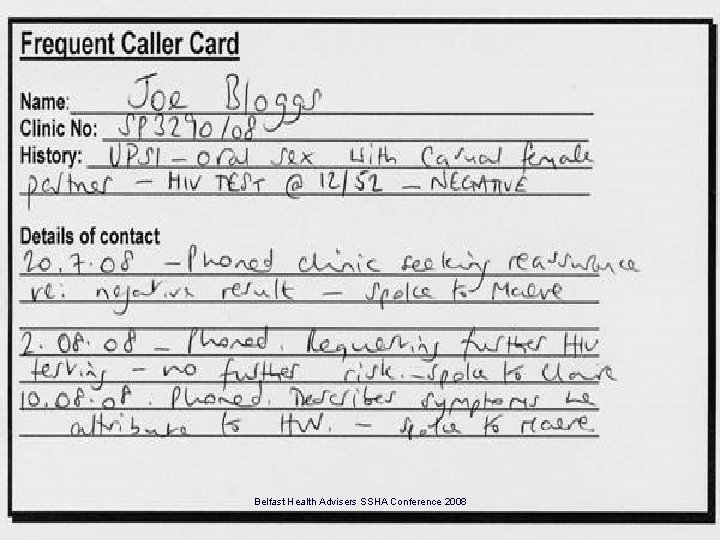 Frequent Caller Card
Name: Joe Bloggs
Clinic No: SP3290/08
History: UPSI - oral sex with casual female
partner - HIV TEST @ 12/52 - NEGATIVE
Details of contact
20.7.08 - Phoned clinic seeking reassurance
re: negative result - spoke to Maeve
2.08.08 - Phoned. Requesting further HIV
testing - no further risk. - spoke to Clare
10.08.08. Phoned. Describes symptoms he
attributes to HIV. - spoke to Maeve
Belfast Health Advisers SSHA Conference 2008